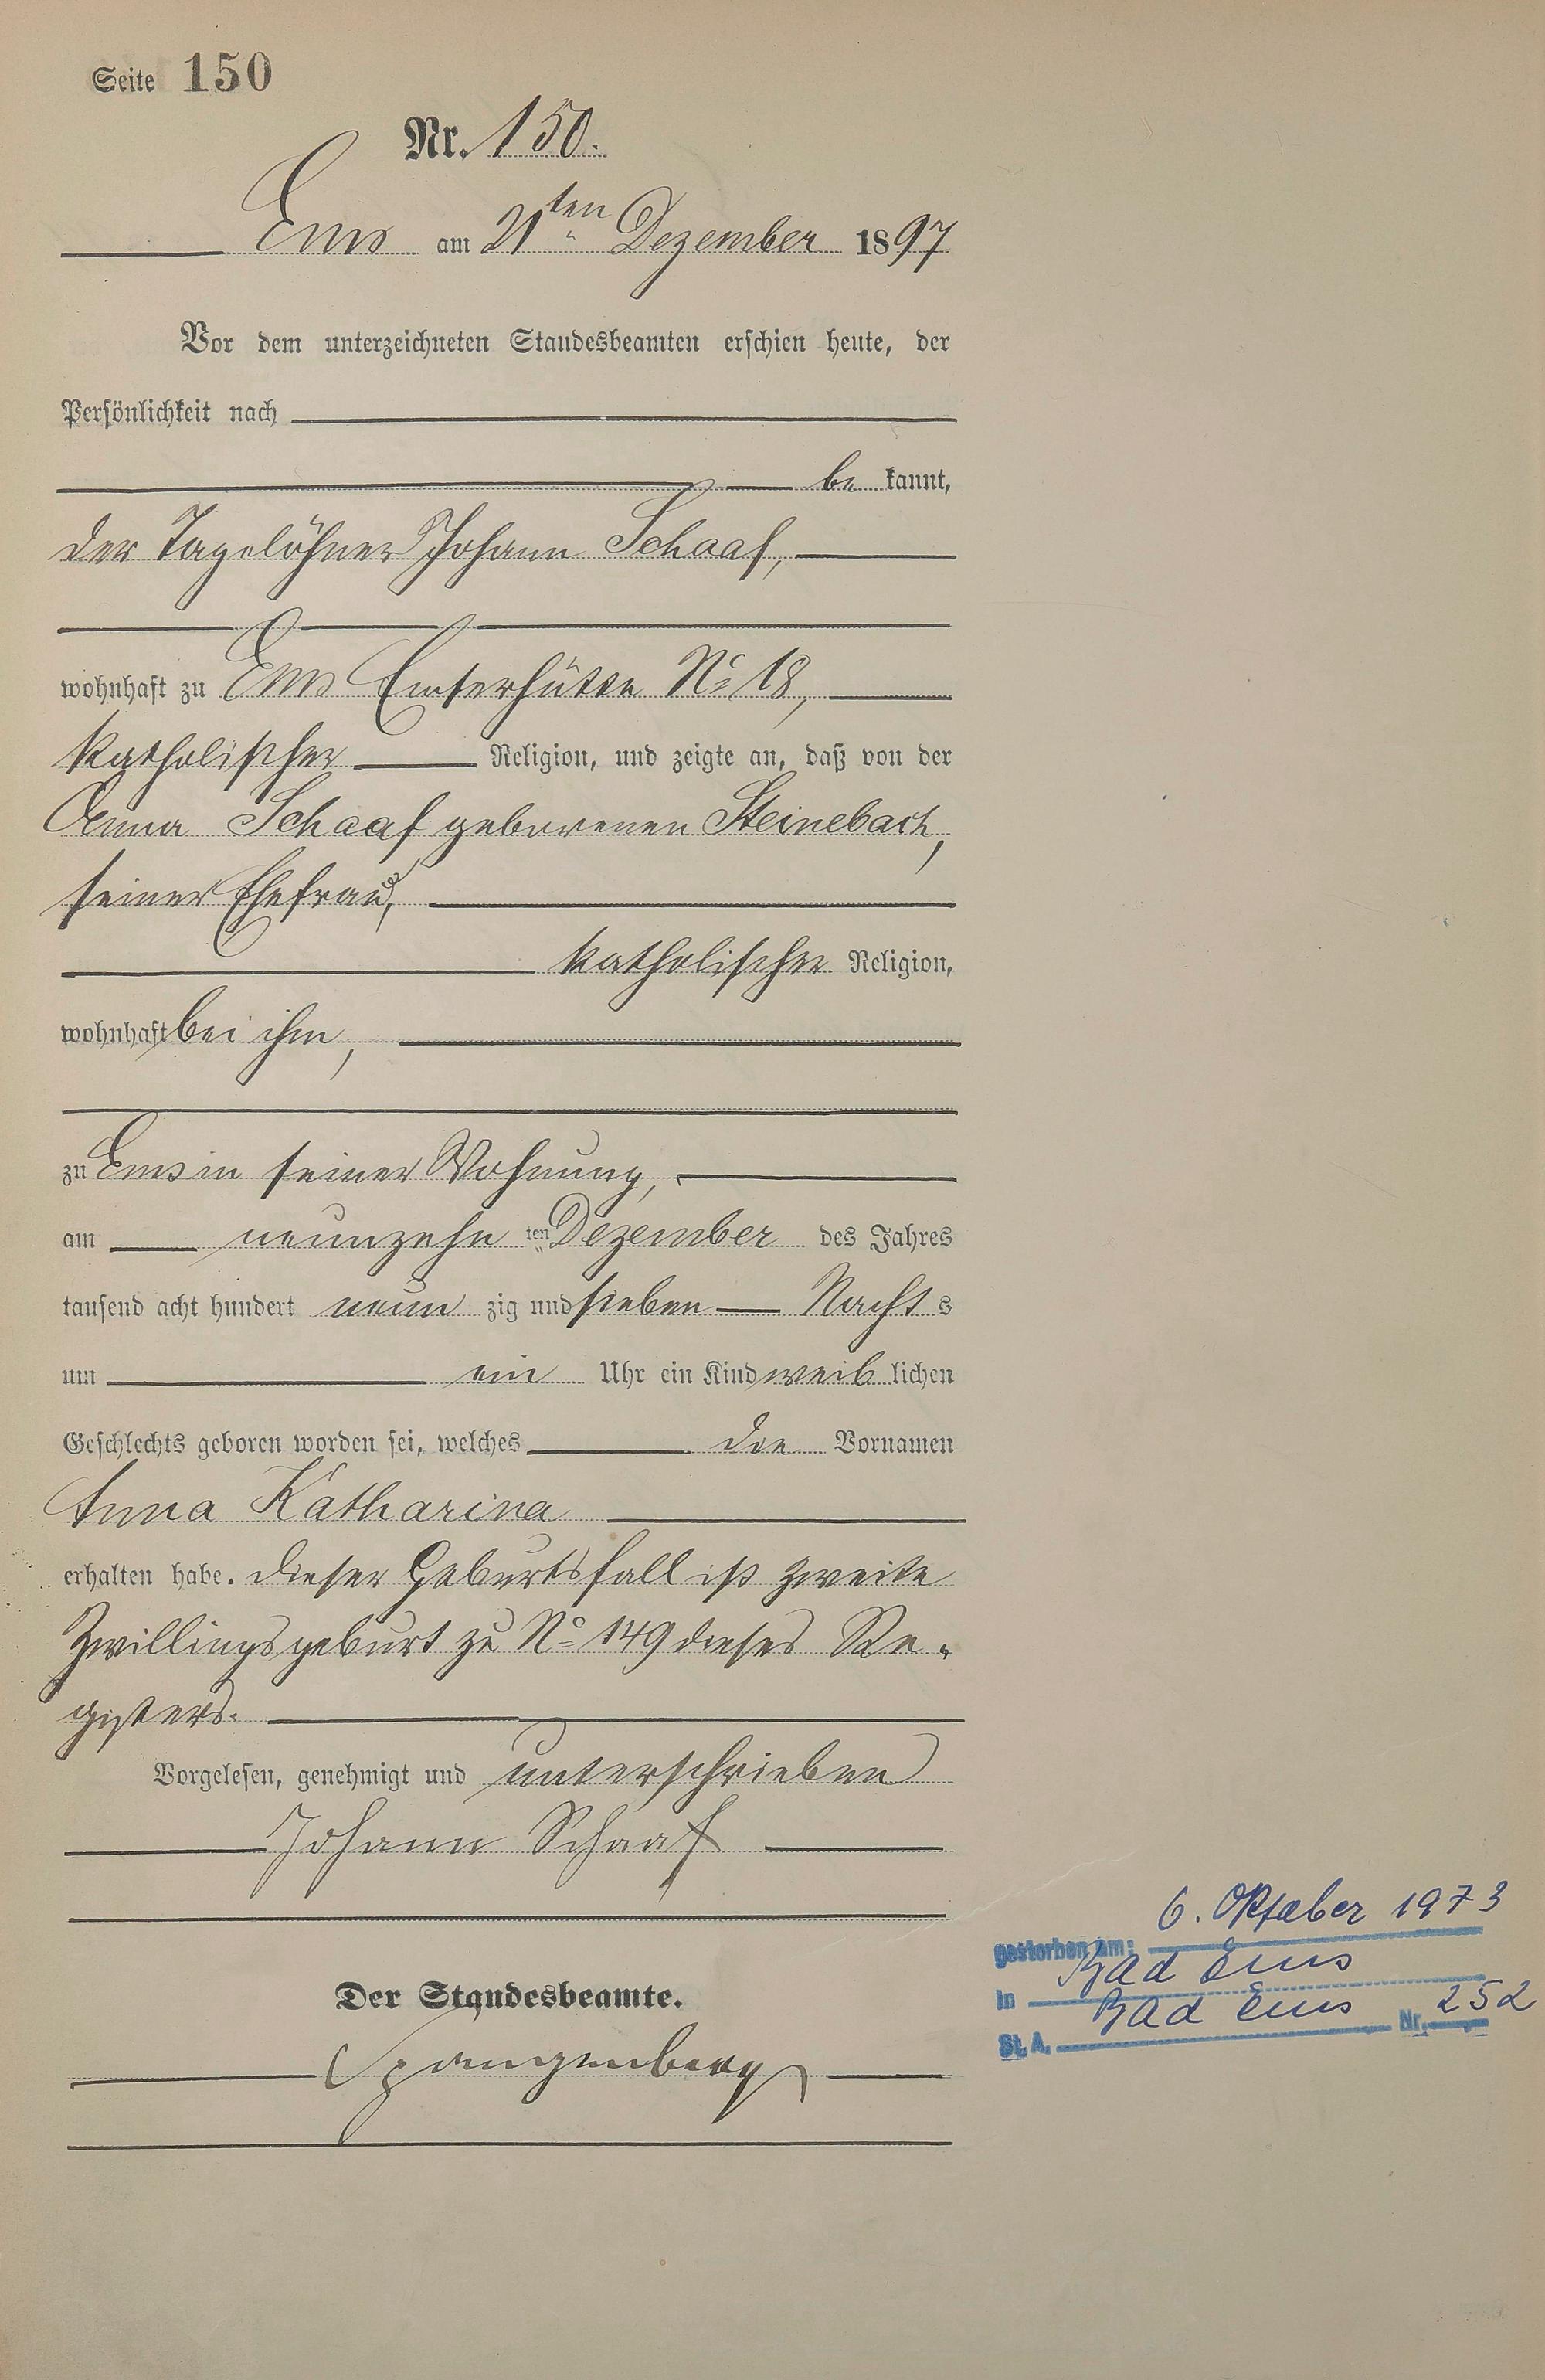 Seite 150
Nr. 150.
Ems am 21ten Dezember 1897
Vor dem unterzeichneten Standesbeamten erschien heute, der
Persönlichkeit nach
be kannt,
der Tagelöhner Johann Schaaf,
wohnhaft zu Ems Emserhütte No 18,
katholischer Religion, und zeigte an, daß von der
Anna Schaaf geborenen Steinebach,
seiner Ehefrau,
katholischer Religion,
wohnhaft bei ihm,
zu Ems in seiner Wohnung,
am neunzehn ten Dezember des Jahres
tausend acht hundert neun zig und sieben Nacht s
um ein Uhr ein Kind weib lichen
Geschlechts geboren worden sei, welches die Vornamen
Anna Katharina
erhalten habe. Dieser Geburtsfall ist zweite
Zwillingsgeburt zu No 149 dieses Re-
gisters.
Vorgelesen, genehmigt und unterschrieben
Johann Schaaf
Der Standesbeamte.
Spangenberg
6. Oktober 1973
gestorben am:
in Bad Ems
St. A. Bad Ems Nr. 252